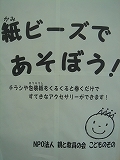 かみ
紙ビーズで
あそぼう!
チラシや包装紙をくるくると巻くだけで
すてきなアクセサリーができます!
NPO法人 親と教員の会 こどものその